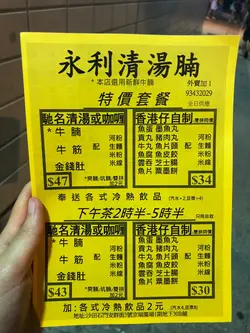 永利清湯腩
*本店選用新鮮牛腩
外賣加1
93432029
特價套餐
全日供應
馳名清湯或咖喱
*牛腩
牛筋
金錢肚
配
河粉
生麵
米粉
米線
$47
加2元
香港仔自制
魚蛋 墨魚丸
貢丸 豬肉丸
牛丸 魚片頭
魚腐 魚皮餃
雲吞 芝士腸
魚片 栗米餅
配
河粉
生麵
米粉
米線
$36
奉送各式冷熱飲品
下午茶2時半-5時半
馳名清湯或咖喱
*牛腩
牛筋
金錢肚
配
河粉
生麵
米粉
米線
$43
加2元
香港仔自制
魚蛋 墨魚丸
貢丸 豬肉丸
牛丸 魚片頭
魚腐 魚皮餃
雲吞 芝士腸
魚片 栗米餅
配
河粉
生麵
米粉
米線
$30
加:各式冷熱飲品2元